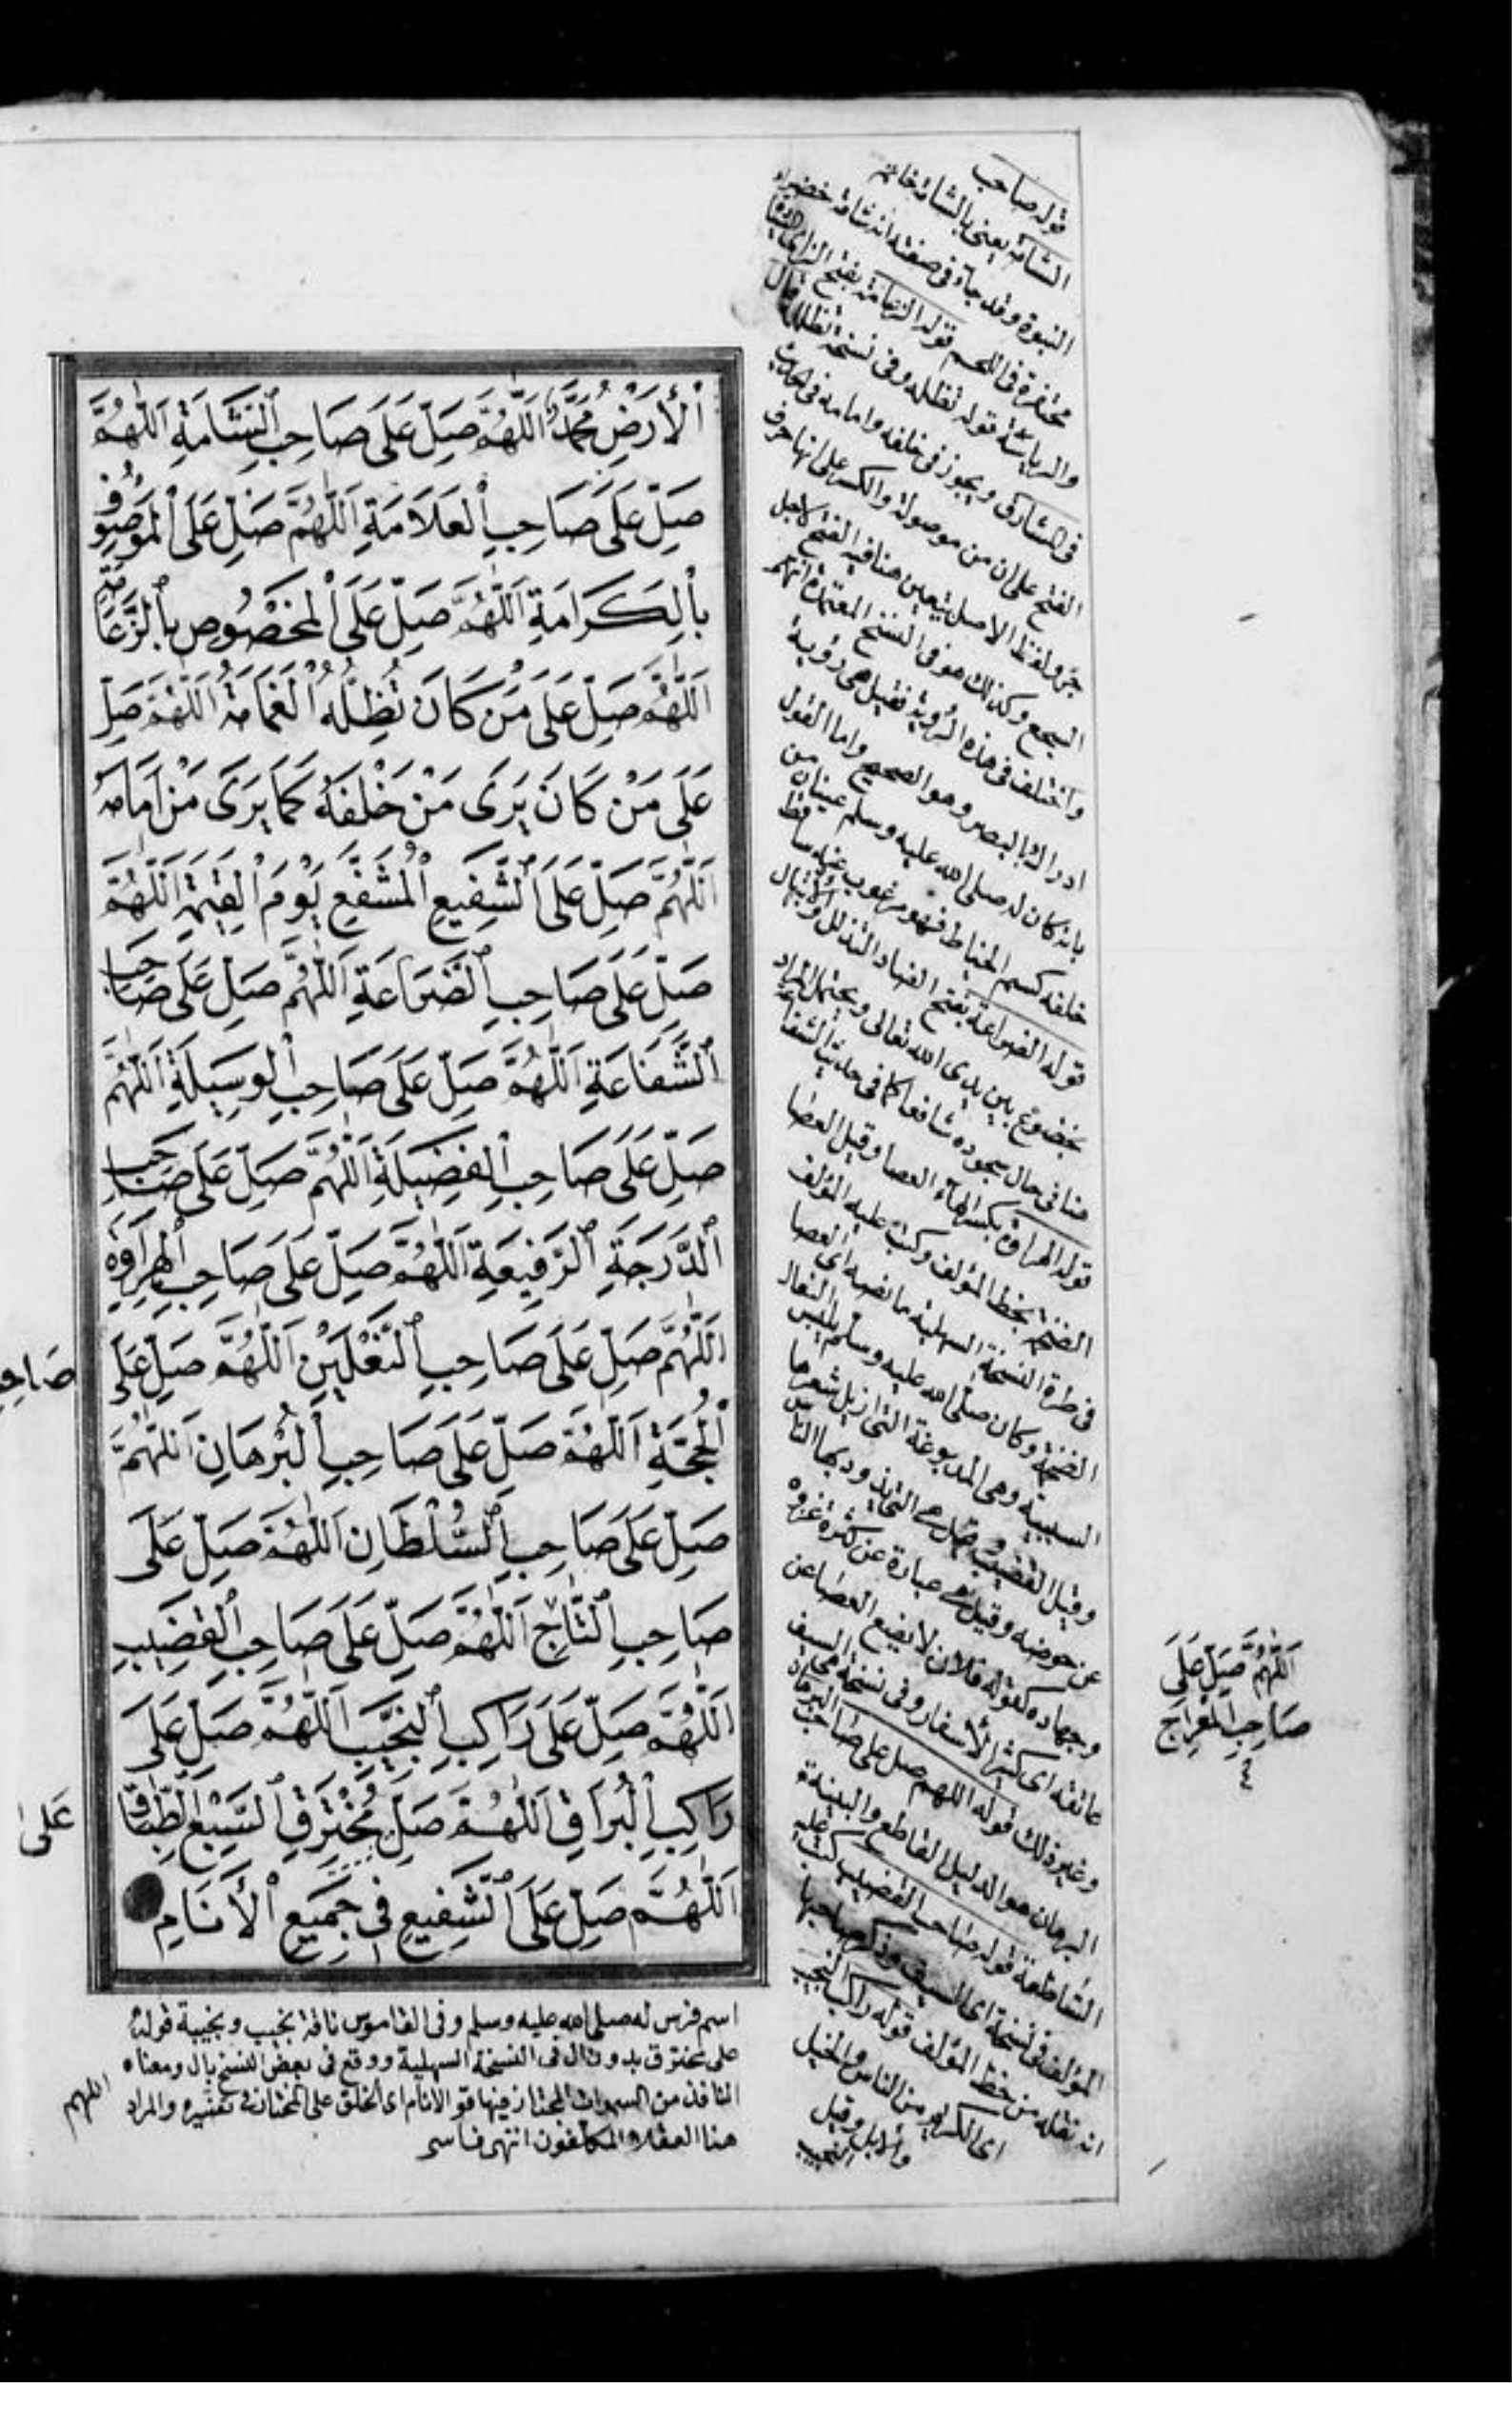 ٱلْأَرْضِ مُحَمَّدٌ اَللّٰهُمَّ صَلِّ عَلَى صَاحِبِ ٱلشَّامَةِ اَللّٰهُمَّ
صَلِّ عَلَى صَاحِبِ ٱلْعَلَامَةِ اَللّٰهُمَّ صَلِّ عَلَى ٱلْمَوْصُوفِ
بِٱلْكَرَامَةِ اَللّٰهُمَّ صَلِّ عَلَى ٱلْمَخْصُوصِ بِٱلزَّعَامَةِ
اَللّٰهُمَّ صَلِّ عَلَى مَنْ كَانَ تُظِلُّهُ ٱلْغَمَامَةُ اَللّٰهُمَّ صَلِّ
عَلَى مَنْ كَانَ يَرَى مَنْ خَلْفَهُ كَمَا يَرَى مَنْ اَمَامَهُ
اَللّٰهُمَّ صَلِّ عَلَى ٱلشَّفِيعِ ٱلْمُشَفَّعِ يَوْمَ ٱلْقِيٰمَةِ اَللّٰهُمَّ
صَلِّ عَلَى صَاحِبِ ٱلضَّرَاعَةِ اَللّٰهُمَّ صَلِّ عَلَى صَاحِبِ
ٱلشَّفَاعَةِ اَللّٰهُمَّ صَلِّ عَلَى صَاحِبِ ٱلْوَسِيلَةِ اَللّٰهُمَّ
صَلِّ عَلَى صَاحِبِ ٱلْفَضِيلَةِ اَللّٰهُمَّ صَلِّ عَلَى صَاحِبِ
ٱلدَّرَجَةِ ٱلرَّفِيعَةِ اَللّٰهُمَّ صَلِّ عَلَى صَاحِبِ ٱلْهِرَاوَةِ
اَللّٰهُمَّ صَلِّ عَلَى صَاحِبِ ٱلنَّعْلَيْنِ اَللّٰهُمَّ صَلِّ عَلَى
صَاحِبِ
ٱلْحُجَّةِ اَللّٰهُمَّ صَلِّ عَلَى صَاحِبِ ٱلْبُرْهَانِ اَللّٰهُمَّ
صَلِّ عَلَى صَاحِبِ ٱلسُّلْطَانِ اَللّٰهُمَّ صَلِّ عَلَى
صَاحِبِ ٱلتَّاجِ اَللّٰهُمَّ صَلِّ عَلَى صَاحِبِ ٱلْقَضِيبِ
اَللّٰهُمَّ صَلِّ عَلَى
صَاحِبِ ٱلْمِعْرَاجِ
٤
اَللّٰهُمَّ صَلِّ عَلَى رَاكِبِ ٱلنَّجِيبِ اَللّٰهُمَّ صَلِّ عَلَى
رَاكِبِ ٱلْبُرَاقِ اَللّٰهُمَّ صَلِّ مُخْتَرِقِ ٱلسَّبْعِ ٱلطِّبَاقِ
عَلَى
اَللّٰهُمَّ صَلِّ عَلَى ٱلشَّفِيعِ فِي جَمِيعِ ٱلْأَنَامِ
قوله صاحب
الشامة يعنى بالشامة خاتم
النبوة وقد جاء فى صفته انه شامة خضراء
محتفرة فى اللحم قوله الزعامة بفتح الزاى السيادة
والرياسة قوله تظله وفى نسخة تظلله قال
فى المشارق ويجوز فى خلفه وامامه فى الحديث
الفتح على ان من موصولة والكسر على انها حرف
جر ولفظ الاصل يتعين هنا فيه الفتح لاجل
السجع وكذلك هو فى النسخ المعتمدة
واختلف فى هذه الرؤية فقيل هى رؤية
ادراك بالبصر وهو الصحيح واما القول
بانه كان له صلى الله عليه وسلم عينان من
خلفه كسم الخياط فهو مرغوب عنه ساقط
قوله الضراعة بفتح الضاد التذلل والابتهال
بخضوع بين يدى الله تعالى ويحتمل المراد
هنا فى حال سجوده شافعا كما فى حديث الشفاعة
قوله الهراوة بكسر الهاء العصا وقيل العصا
الضخمة بخط المؤلف وكتب عليه المؤلف
فى طرة النسخة السهلية ما نصه اى العصا
الضخمة وكان صلى الله عليه وسلم يلبس النعال
السبتية وهى المدبوغة التى ازيل شعرها
وقيل القضيب وقيل هى التى يذود بها الناس
عن حوضه وقيل هى عبارة عن كثرة غزوه
وجهاده كقوله فلان لا يضع العصا عن
عاتقه اى كثير الأسفار وفى نسخة هى السيف
وغير ذلك قوله اللهم صل على صاحب البرهان
البرهان هو الدليل القاطع والبينة
الساطعة قوله صاحب القضيب كتب عليه
المؤلف فى نسخة اى السيف وذكر صاحبها
انه نقله من خط المؤلف قوله راكب النجيب
اى الكريم من الناس والخيل
والابل وقيل
النجيب
اسم فرس له صلى الله عليه وسلم وفى القاموس ناقة نجيب ونجيبة قوله
على مخترق بدون ال فى النسخة السهلية ووقع فى بعض النسخ بال ومعناه
النافذ من السموات المجتاز فيها قو الانام اى الخلق على المختار فى تفسيره والمراد
هنا العقلاء المكلفون انتهى فاسى
اللهم